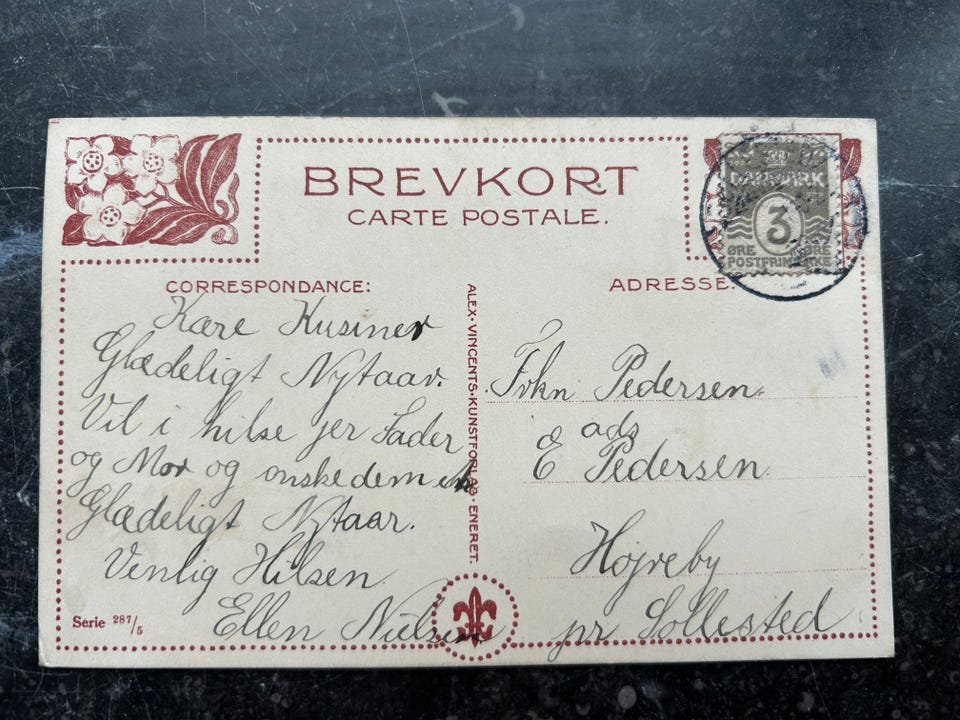 BREVKORT
CARTE POSTALE.
DANMARK
3
ØRE ØRE
POSTFRIMÆRKE
CORRESPONDANCE:
Kære Kusiner
Glædeligt Nytaar.
Vil i hilse jer Fader
og Mor og onske dem et
Glædeligt Nytaar.
Venlig Hilsen.
Ellen Nielsen
Serie 287/5
ALEX. VINCENTS. KUNSTFORLAG. ENERET.
ADRESSE:
Frkn Pedersen
ads
E Pedersen
Højreby
pr Sollested